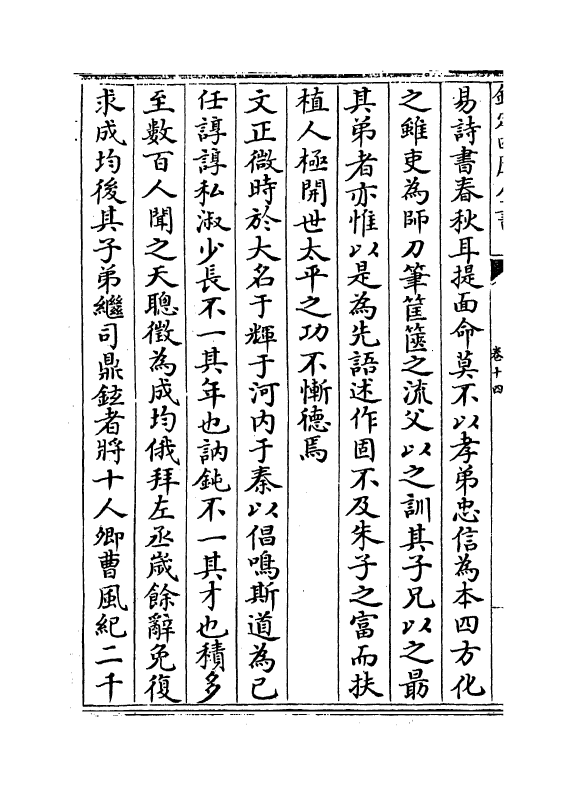 欽定四庫全書
卷十四
易詩書春秋耳提面命莫不以孝弟忠信為本四方化
之雖吏為師刀筆筐篋之流父以之訓其子兄以之最
其弟者亦惟以是為先語述作固不及朱子之富而扶
植人極開世太平之功不慚德焉
文正微時於大名于輝于河内于秦以倡鳴斯道為己
任諄諄私淑少長不一其年也訥鈍不一其才也積多
至數百人聞之天聰徵為成均俄拜左丞歲餘辭免復
求成均後其子弟繼司鼎鉉者將十人卿曹風紀二千